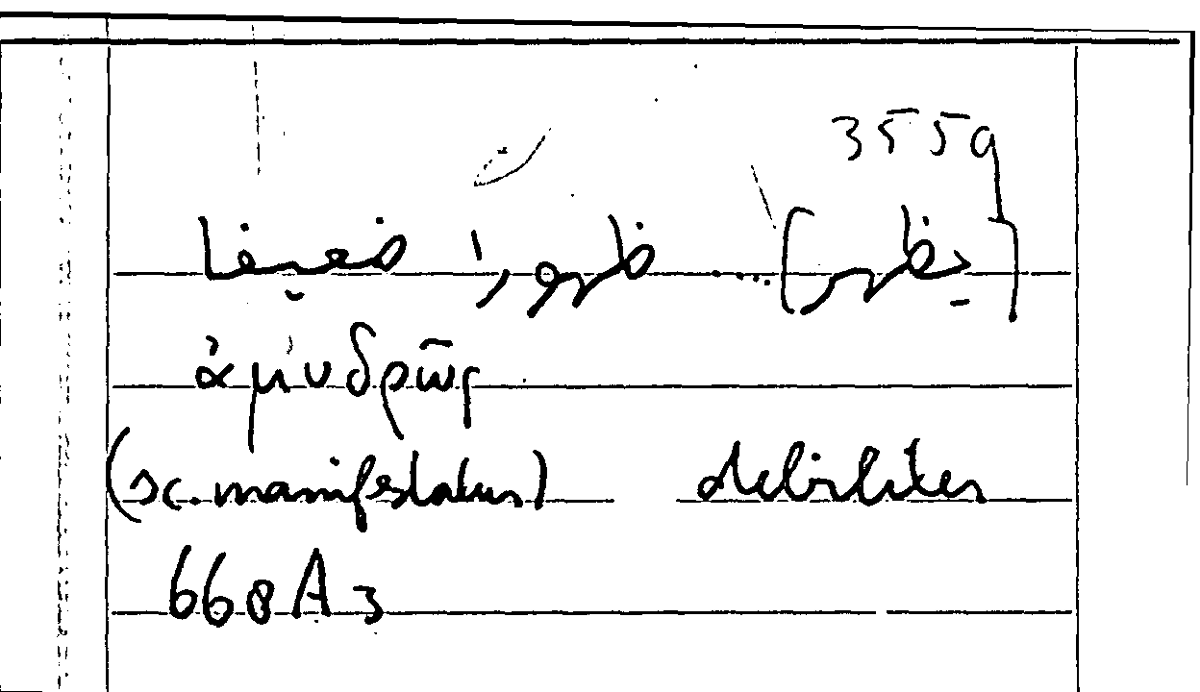 3559
[يظهر] ... ظهورا ضعيفا
ἀμυδρῶς
(sc. manifestatur) debiliter
668A3